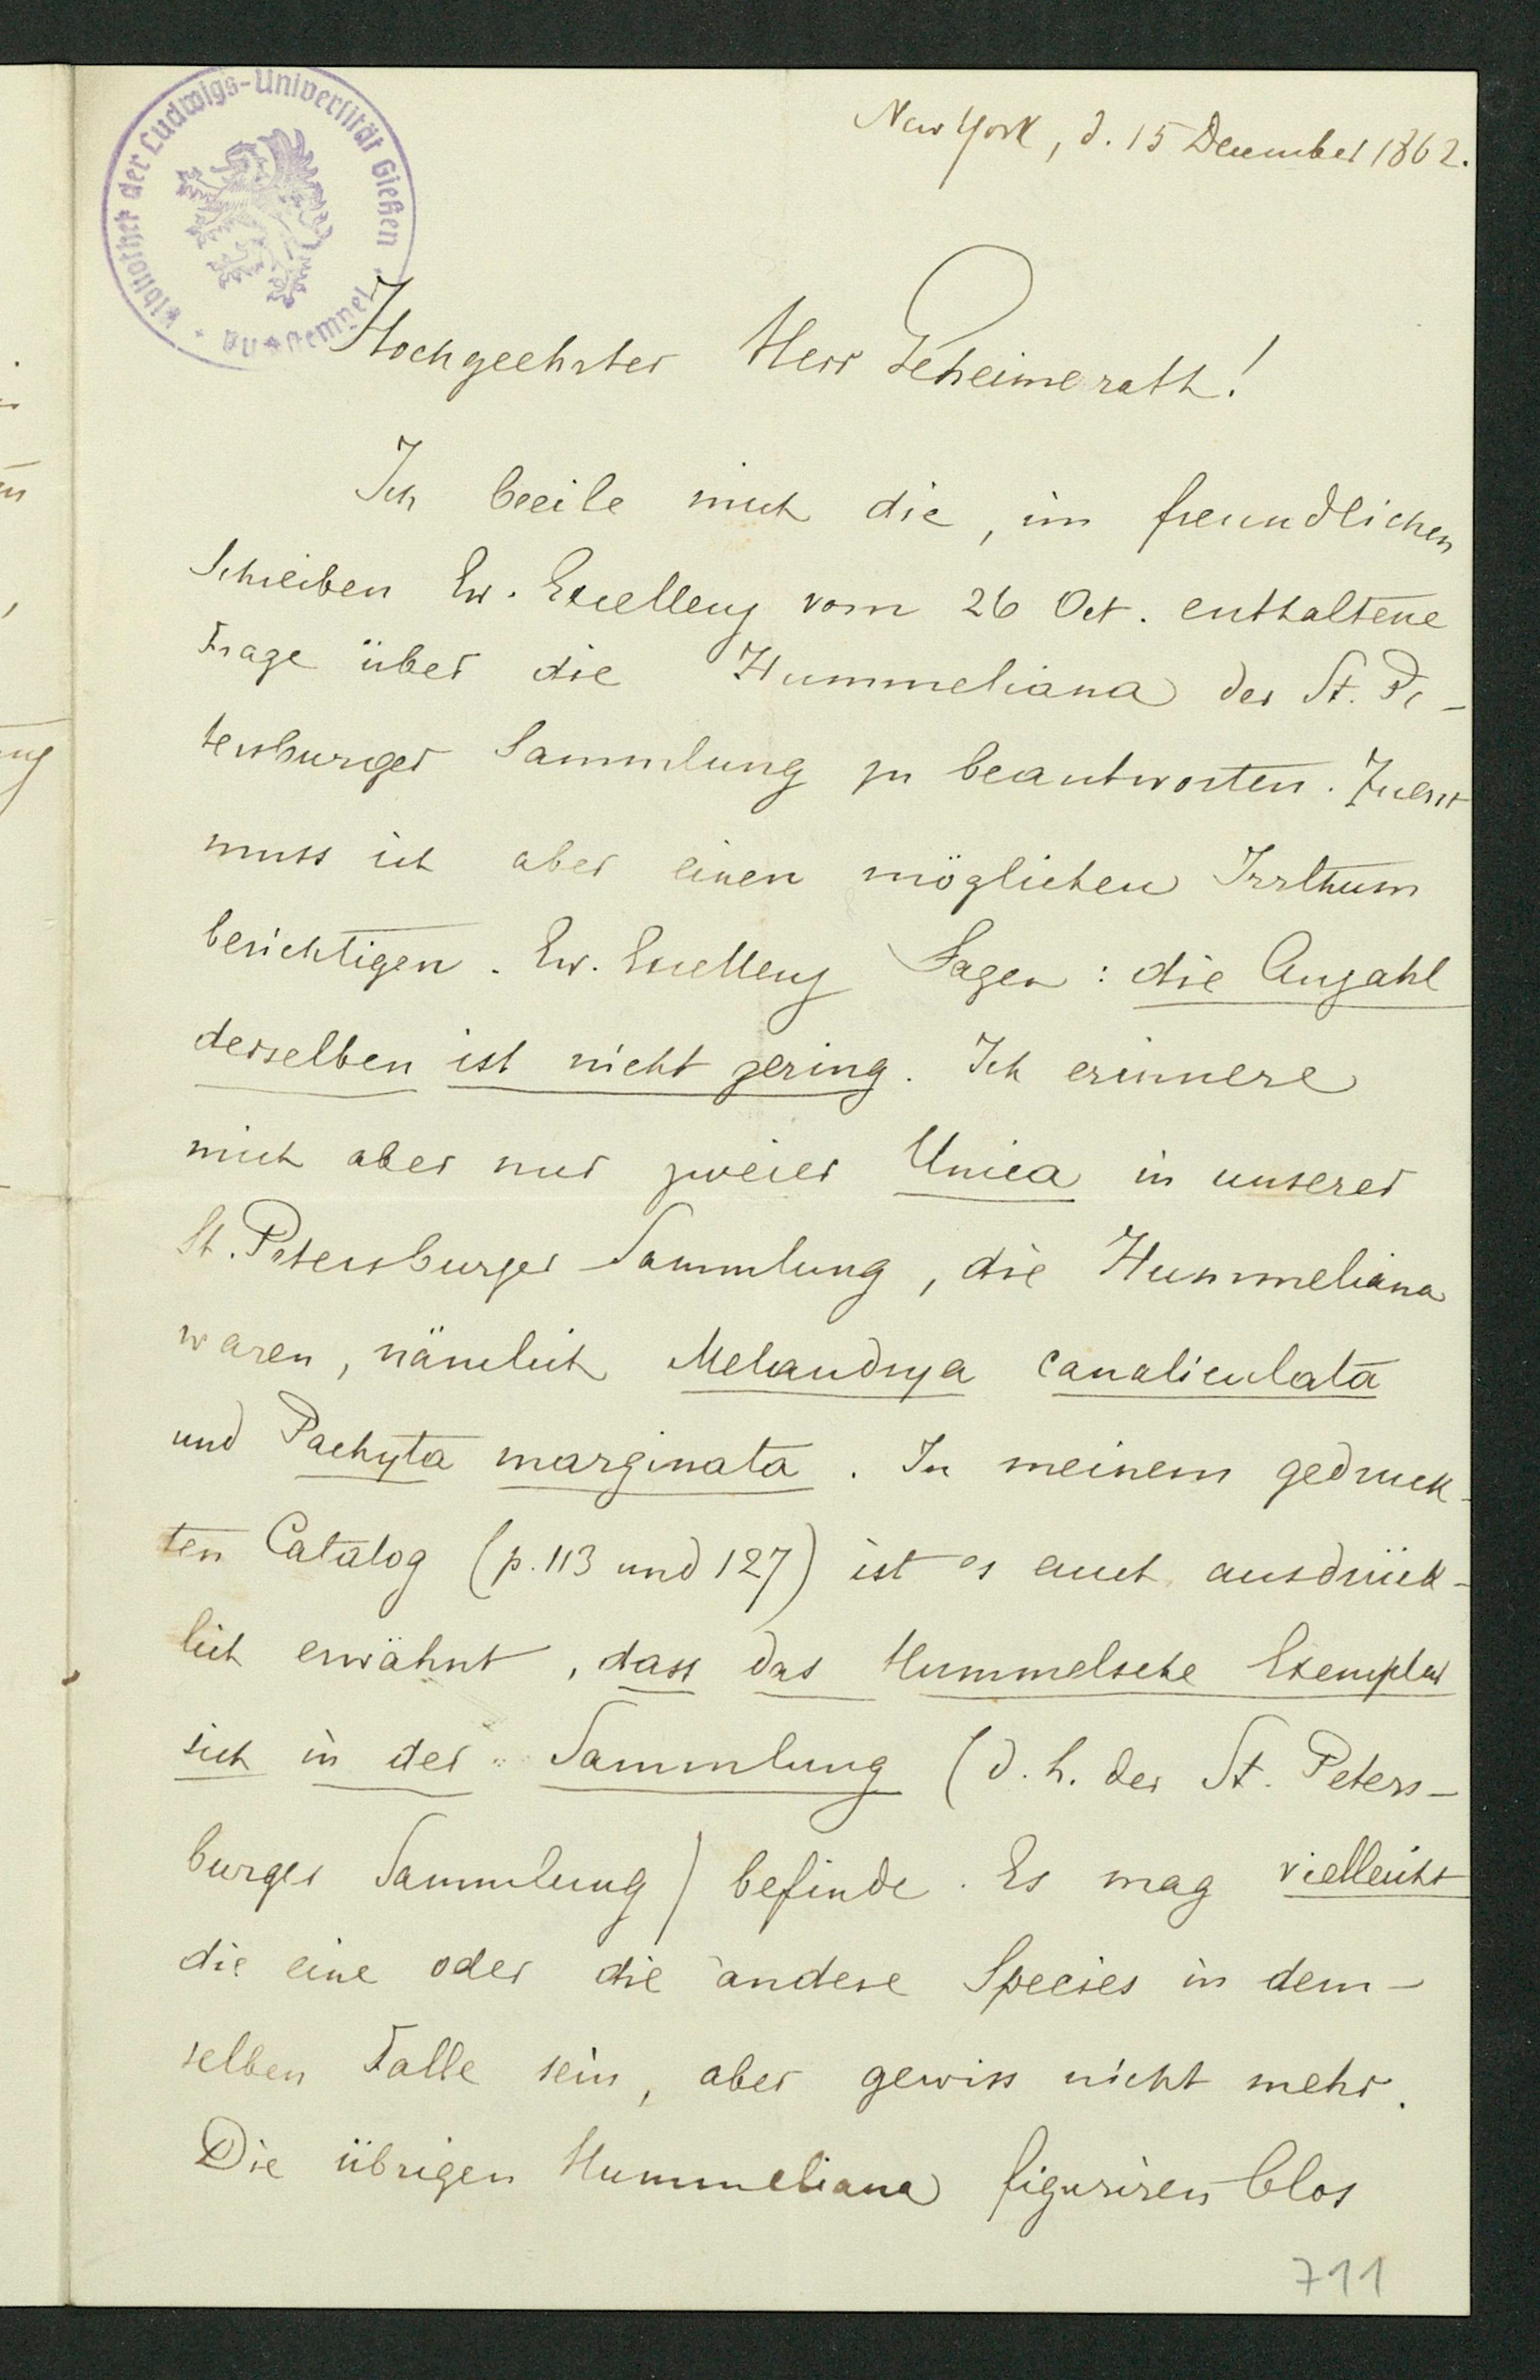 Bibliothek der Ludwigs-Universität Gießen
New York, d. 15 December 1862.
Hochgeehrter Herr Geheimerath!
Ich beeile mich die, im freundlichen
Schreiben Ew. Excellenz vom 26 Oct. enthaltene
Frage über die Hummeliana der St. Pe-
tersburger Sammlung zu beantworten. Zuerst
muss ich aber einen möglichen Irrthum
berichtigen. Ew. Excellenz sagen: die Anzahl
derselben ist nicht gering. Ich erinnere
mich aber nur zweier Unica in unserer
St. Petersburger Sammlung, die Hummeliana
waren, nämlich Melandrya canaliculata
und Pachyta marginata. In meinem gedruck-
ten Catalog (p. 113 und 127) ist es auch ausdrück-
lich erwähnt, dass das Hummelsche Exemplar
sich in der Sammlung (d. h. der St. Peters-
burger Sammlung) befinde. Es mag vielleicht
die eine oder die andere Species in dem-
selben Falle sein, aber gewiss nicht mehr.
Die übrigen Hummeliana figuriren blos
711